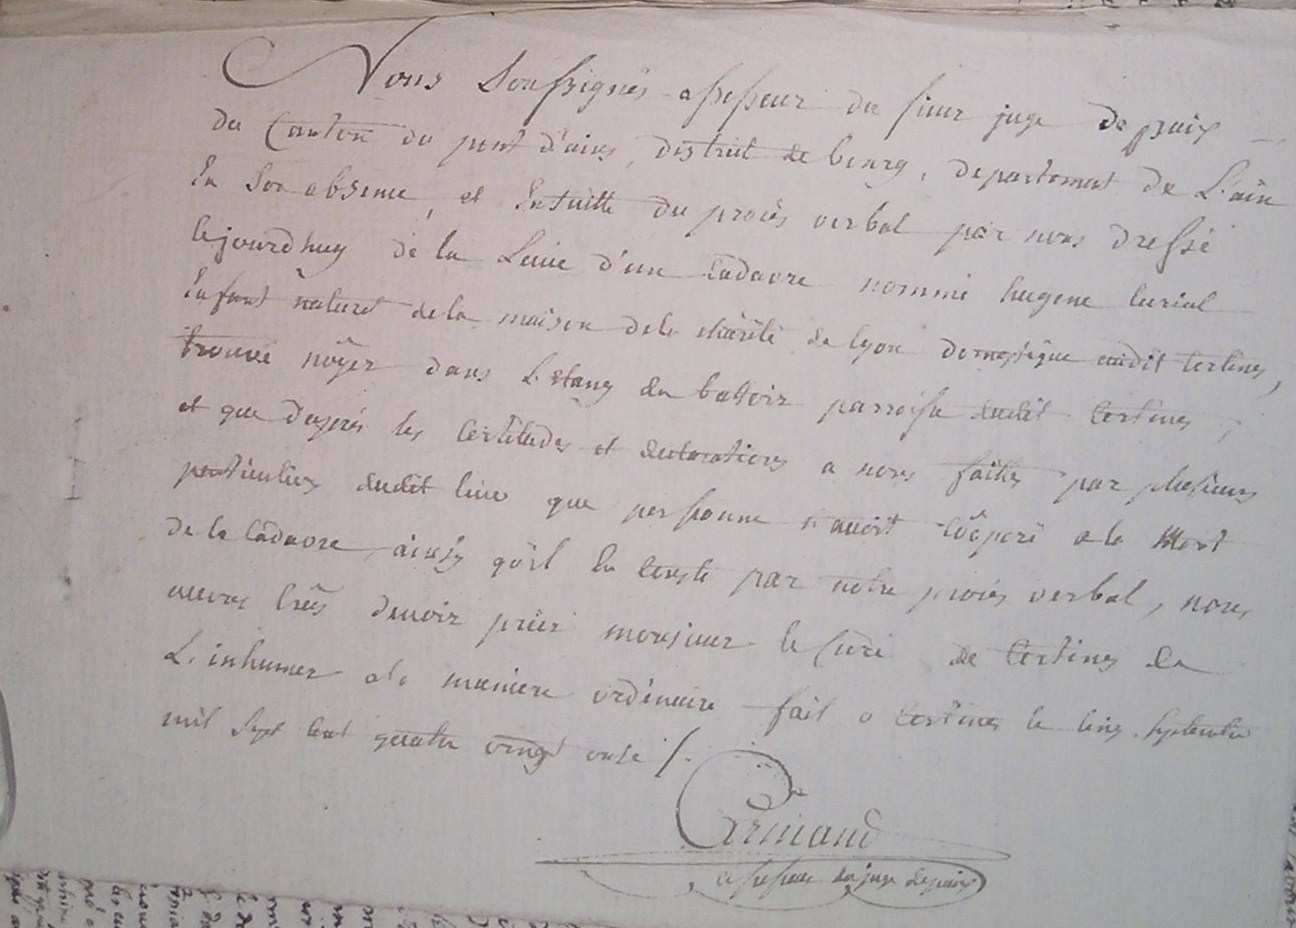 Nous Soussignés assesseur du sieur juge de paix
du Canton du pont d'ains, district de bourg, departement de L'ain
En Son absence, et Ensuitte du procès verbal par nous dressé
Cejourdhuy de la Levée d'un Cadavre nommé hugene
Enfant naturel de la maison dela charité de lyon domestique audit Certines,
trouvé nöyer dans L'etang du battoir parroisse dudit Certines,
et que dapprés les Certitudes et declarations a nous faittes par plusieurs
particuliers dudit lieu que personne n'avoit coöperé a la Mort
de la Cadavre, ainsÿ qu'il En Conste par notre procès verbal, nous
avons Crûs devoir prier monsieur le Curé de Certines de
L'inhumer a la maniere ordinaire fait a Certines le cinq Septembre
mil Sept Cent quatre vingt onze /.
assesseur du juge depaix